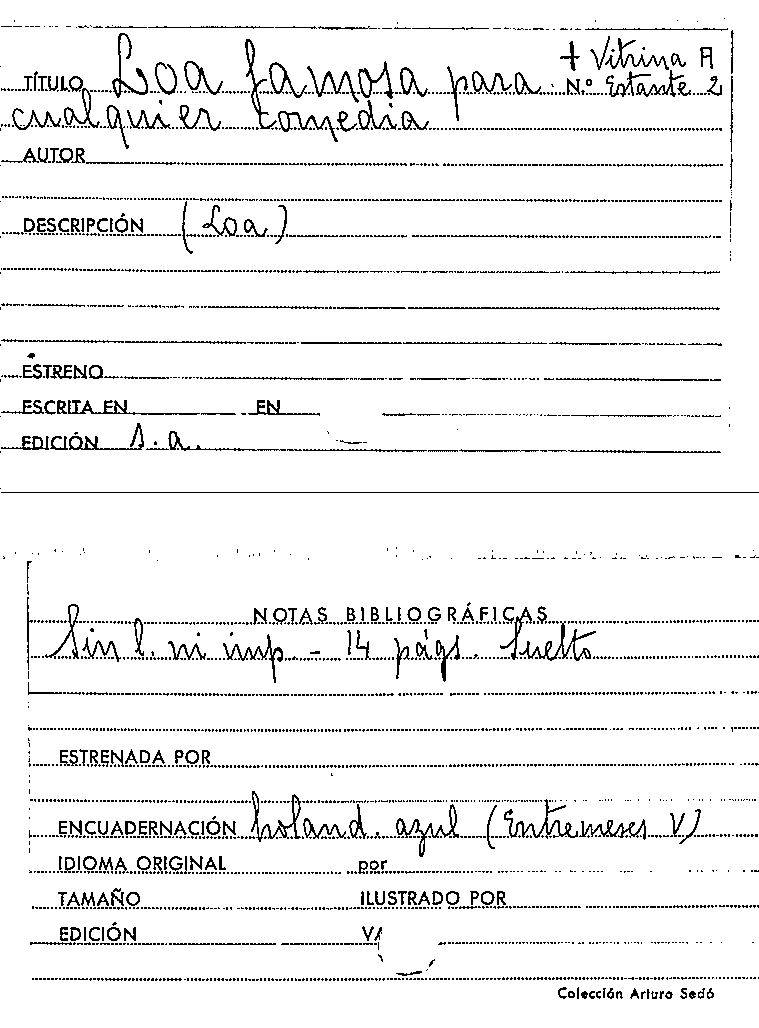 + Vitrina A
TÍTULO Loa famosa para N.º Estante 2
cualquier comedia
AUTOR
DESCRIPCIÓN (Loa)
ESTRENO
ESCRITA EN EN
EDICIÓN s.a.
NOTAS BIBLIOGRÁFICAS
Sin l. ni imp - 14 págs. Suelto
ESTRENADA POR
ENCUADERNACIÓN holand. azul (Entremeses V)
IDIOMA ORIGINAL por
TAMAÑO ILUSTRADO POR
EDICIÓN
Colección Arturo Sedó